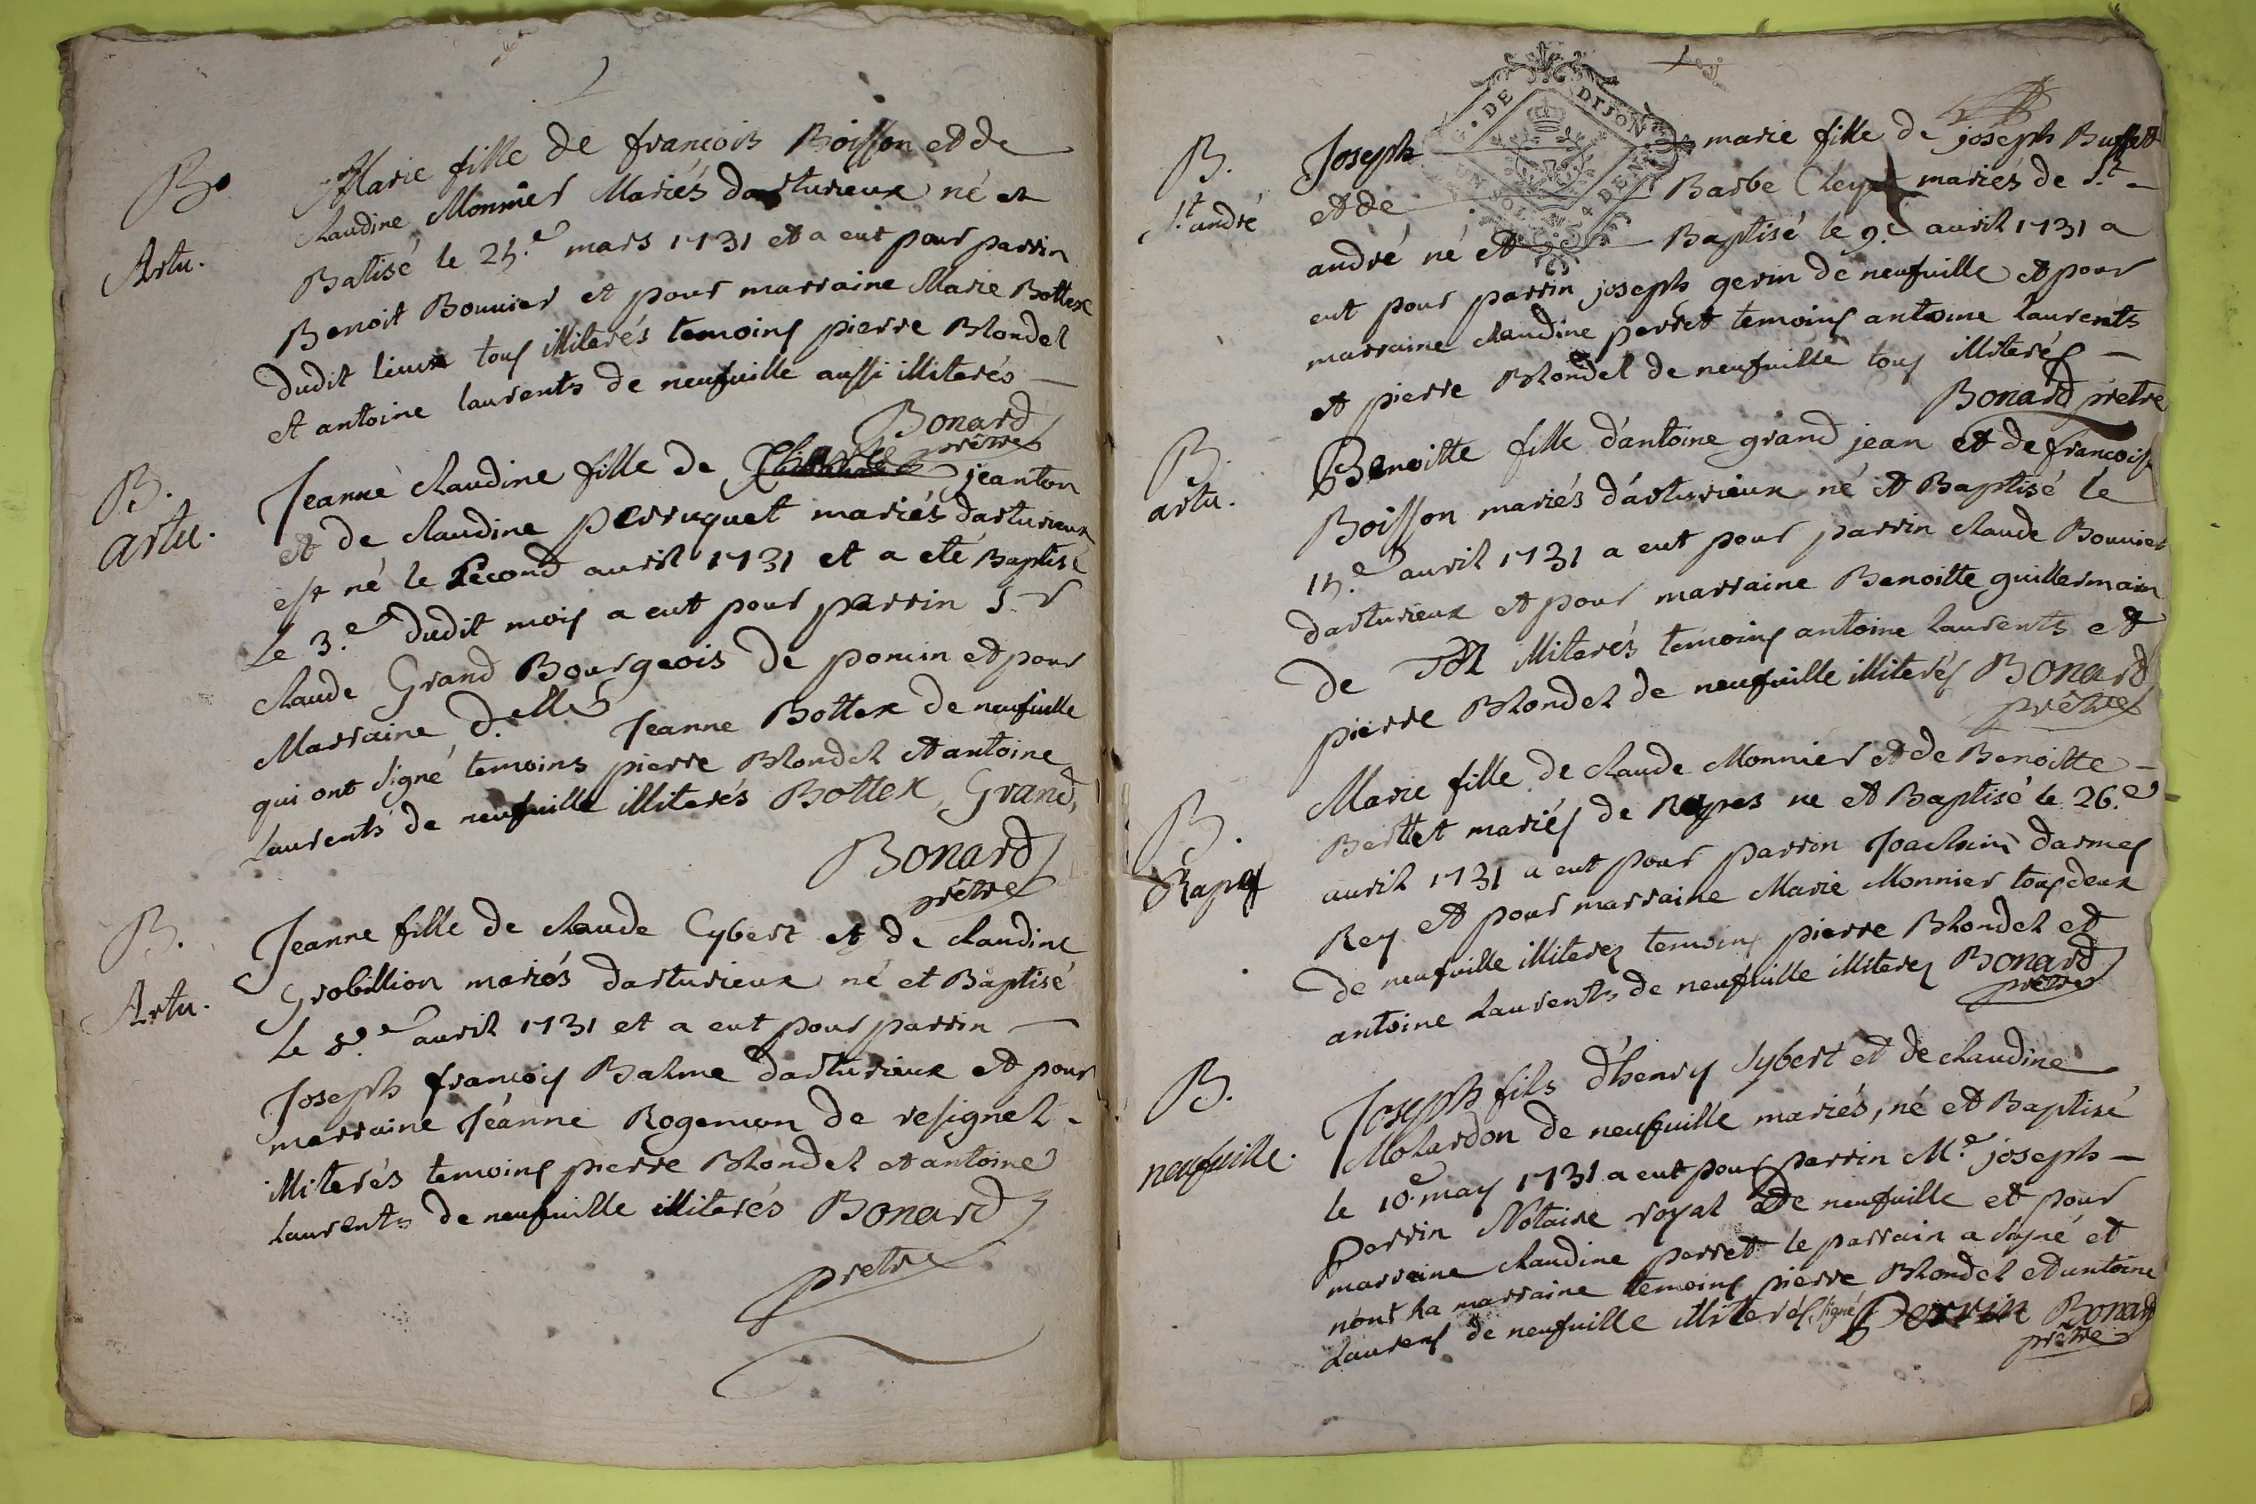 B.
Artu.
Marie fille de françois Boisson et de
claudine Monnier Mariés darturieux né et
Batisé le 25.e mars 1731 et a eut pour parrin
Benoit Bouuier et pour marraine Marie Bottex
dudit lieux tous illiterés temoins pierre Blondel
et antoine laurents de neufuille aussi illiterés
Bonard
prêtre
B.
artu.
Jeanne claudine fille de jeanton
et de claudine perruquet mariés darturieux
est né le second auril 1731 et a eté Baptisé
Le 3.e dudit mois a eut pour parrin S.r
claude Grand Bourgeois de poncin et pour
Marraine d.elle Jeanne Bottex de neufuille
qui ont signé temoins pierre Blondel et antoine
laurents de neufuille illiterés Bottex, Grand,
Bonard
prêtre
B.
Artu.
Jeanne fille de claude Cybert et de claudine
Grobillion mariés darturieux né et Baptisé
Le 8.e auril 1731 et a eut pour parrin
Joseph françois Balme darturieux et pour
marraine Jeanne Rogemon de resignel
illiterés temoins pierre Blondel et antoine
laurents de neufuille illiterés Bonard
pretre
G. DE DIJON
UN SOL. 4 DEN
B.
S.t andré
Joseph marie fille de joseph Buffet
et de Barbe mariés de S.t
andré né et Baptisé le 9.e auril 1731 a
eut pour parrin joseph gerin de neufuille et pour
marraine claudine perret temoins antoine laurents
et pierre Blondel de neufuille tous illiterés
Bonard prêtre
B.
artu.
Benoitte fille d'antoine grand jean et de françoise
Boisson mariés d'arturieux né et Baptisé le
15.e auril 1731 a eut pour parrin claude Bouuier
darturieux et pour marraine Benoitte guillermain
de illiterés temoins antoine laurents et
pierre Blondel de neufuille illiterés Bonard
prêtre
B.
Marie fille de claude Monnier et de Benoitte
Bertet mariés de né et Baptisé le 26.e
auril 1731 a eut pour parron Joachim darmes
Rey et pour marraine Marie Monnier tous deux
de neufuille illiterés temoins pierre Blondel et
antoine laurents de neufuille illiterés Bonard
prêtre
B.
neufuille.
Joseph fils d'henry Sybert et de claudine
Molardon de neufuille mariés, né et Baptisé
le 10.e may 1731 a eut pour parrin M.e joseph
Perrin Notaire royal de neufuille et pour
marraine claudine perret le parrain a signé et
non la marraine temoins pierre Blondel et antoine
laurens de neufuille illiterés, signé Perrin Bonard
prêtre